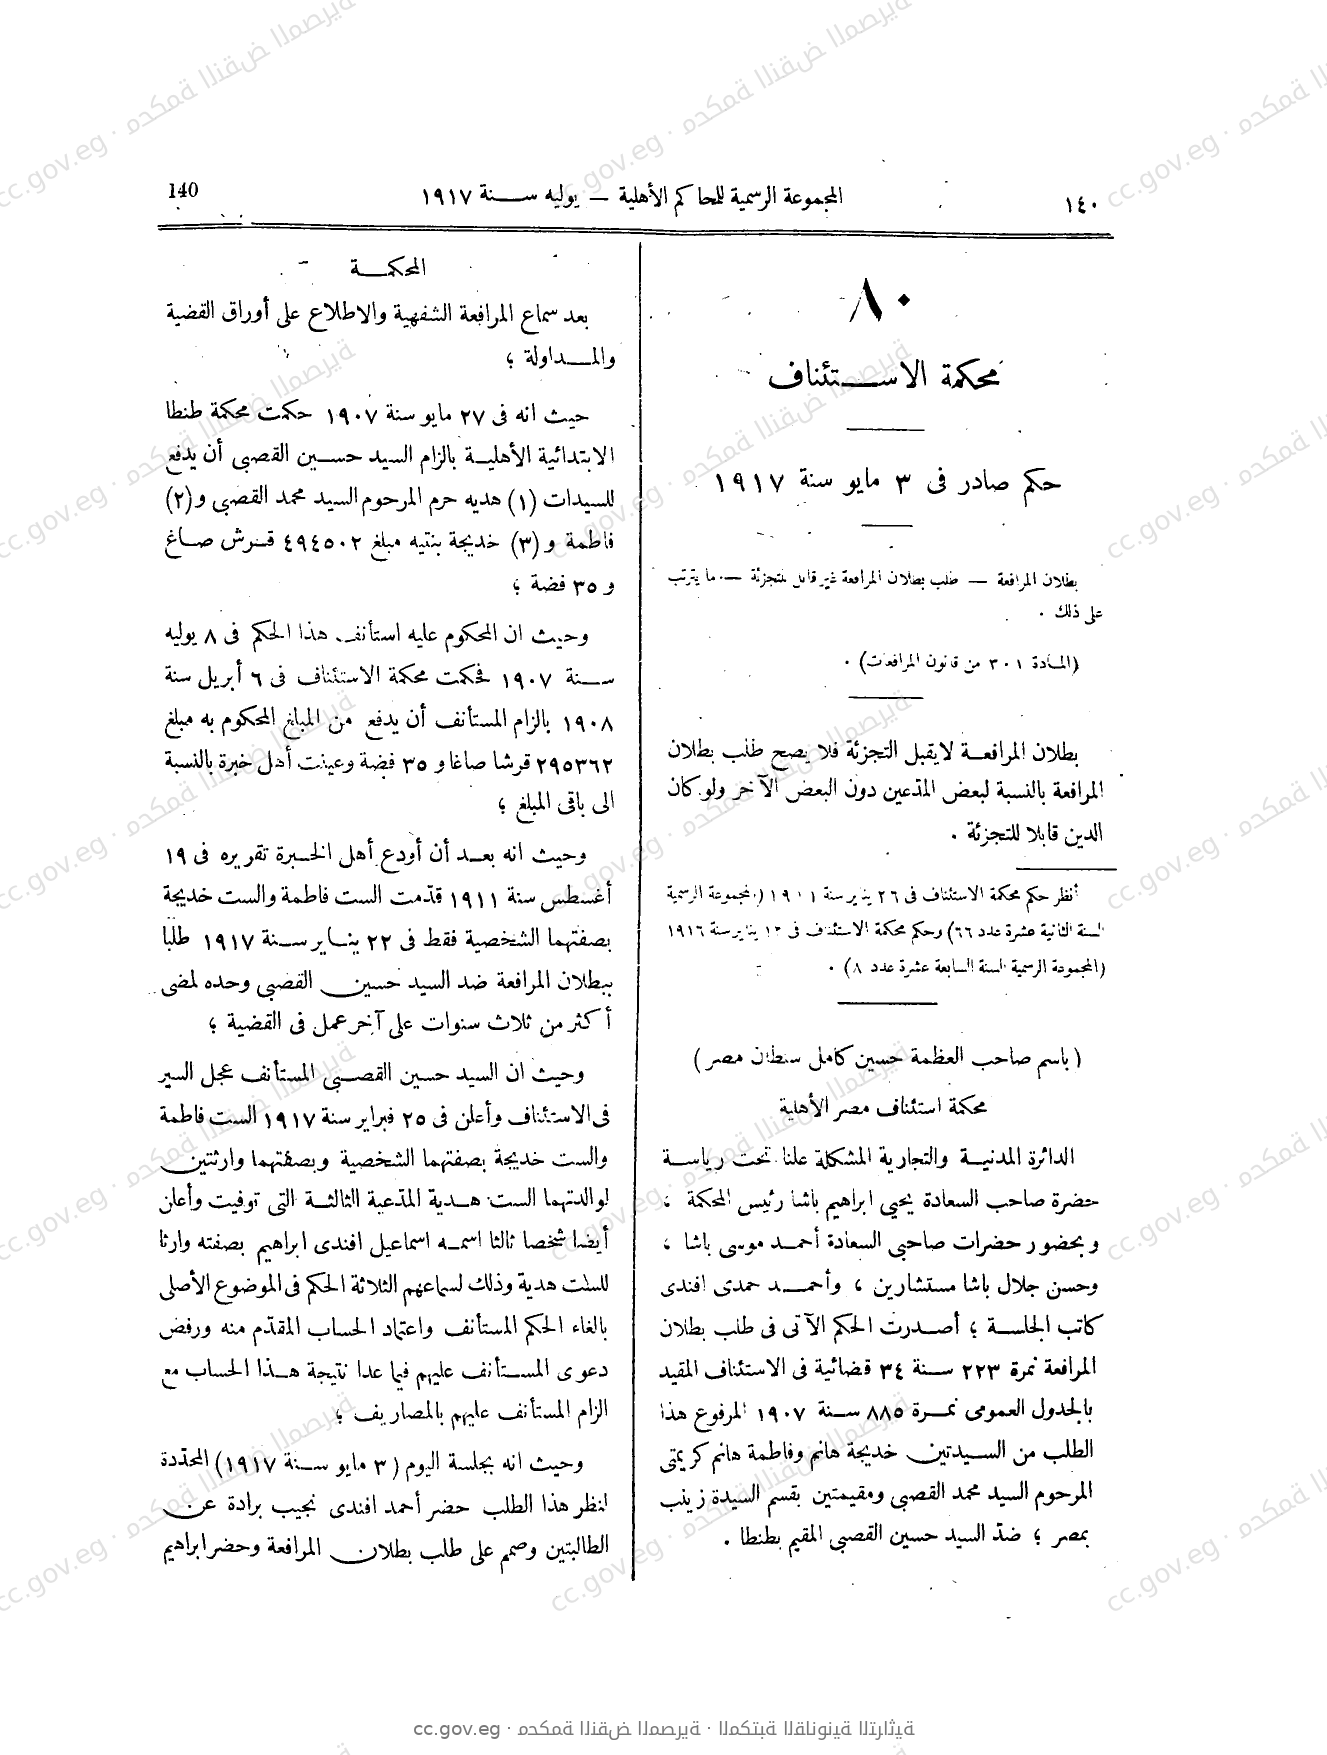 ١٤٠
المجموعة الرسمية للمحاكم الأهلية — يوليه سنة ١٩١٧
140
٨٠
محكمة الاستئناف
حكم صادر فى ٣ مايو سنة ١٩١٧
بطلان المرافعة — طلب بطلان المرافعة غير قابل للتجزئة — ما يترتب
على ذلك .
(المادة ٣٠١ من قانون المرافعات) .
بطلان المرافعة لايقبل التجزئة فلا يصح طلب بطلان
المرافعة بالنسبة لبعض المدّعين دون البعض الآخر ولو كان
الدين قابلا للتجزئة .
أنظر حكم محكمة الاستئناف فى ٢٦ يناير سنة ١٩٠١ (المجموعة الرسمية
السنة الثانية عشرة عدد ٦٦) وحكم محكمة الاستئناف فى ١٢ يناير سنة ١٩١٦
(المجموعة الرسمية السنة السابعة عشرة عدد ٨) .
( باسم صاحب العظمة حسين كامل سلطان مصر )
محكمة استئناف مصر الأهلية
الدائرة المدنية والتجارية المشكلة علنا تحت رياسة
حضرة صاحب السعادة يحيى ابراهيم باشا رئيس المحكمة ،
وبحضور حضرات صاحبى السعادة أحمد موسى باشا ،
وحسن جلال باشا مستشارين ، وأحمد حمدى افندى
كاتب الجلسة ؛ أصدرت الحكم الآتى فى طلب بطلان
المرافعة نمرة ٢٢٣ سنة ٣٤ قضائية فى الاستئناف المقيد
بالجدول العمومى نمرة ٨٨٥ سنة ١٩٠٧ المرفوع هذا
الطلب من السيدتين خديجة هانم وفاطمة هانم كريمتى
المرحوم السيد محمد القصبى ومقيمتين بقسم السيدة زينب
بمصر ؛ ضدّ السيد حسين القصبى المقيم بطنطا .
المحكمة
بعد سماع المرافعة الشفهية والاطلاع على أوراق القضية
والمداولة ؛
حيث انه فى ٢٧ مايو سنة ١٩٠٧ حكمت محكمة طنطا
الابتدائية الأهلية بالزام السيد حسين القصبى أن يدفع
للسيدات (١) هديه حرم المرحوم السيد محمد القصبى و (٢)
فاطمة و (٣) خديجة بنتيه مبلغ ٤٩٤٥٠٢ قرش صاغ
و ٣٥ فضة ؛
وحيث ان المحكوم عليه استأنف هذا الحكم فى ٨ يوليه
سنة ١٩٠٧ فحكمت محكمة الاستئناف فى ٦ أبريل سنة
١٩٠٨ بالزام المستأنف أن يدفع من المبلغ المحكوم به مبلغ
٢٩٥٣٦٢ قرشا صاغا و ٣٥ فضة وعينت أهل خبرة بالنسبة
الى باقى المبلغ ؛
وحيث انه بعد أن أودع أهل الخبرة تقريره فى ١٩
أغسطس سنة ١٩١١ قدّمت الست فاطمة والست خديجة
بصفتهما الشخصية فقط فى ٢٢ يناير سنة ١٩١٧ طلبا
ببطلان المرافعة ضد السيد حسين القصبى وحده لمضى
أكثر من ثلاث سنوات على آخر عمل فى القضية ؛
وحيث ان السيد حسين القصبى المستأنف عجل السير
فى الاستئناف وأعلن فى ٢٥ فبراير سنة ١٩١٧ الست فاطمة
والست خديجة بصفتهما الشخصية وبصفتهما وارثتين
لوالدتهما الست هدية المدّعية الثالثة التى توفيت وأعلن
أيضا شخصا ثالثا اسمه اسماعيل افندى ابراهيم بصفته وارثا
للست هدية وذلك لسماعهم الثلاثة الحكم فى الموضوع الأصلى
بالغاء الحكم المستأنف واعتماد الحساب المقدّم منه ورفض
دعوى المستأنف عليهم فيما عدا نتيجة هذا الحساب مع
الزام المستأنف عليهم بالمصاريف ؛
وحيث انه بجلسة اليوم (٣ مايو سنة ١٩١٧) المحدّدة
لنظر هذا الطلب حضر أحمد افندى نجيب برادة عن
الطالبتين وصمم على طلب بطلان المرافعة وحضر ابراهيم
cc.gov.eg · محكمة النقض المصرية · المكتبة القانونية التراثية